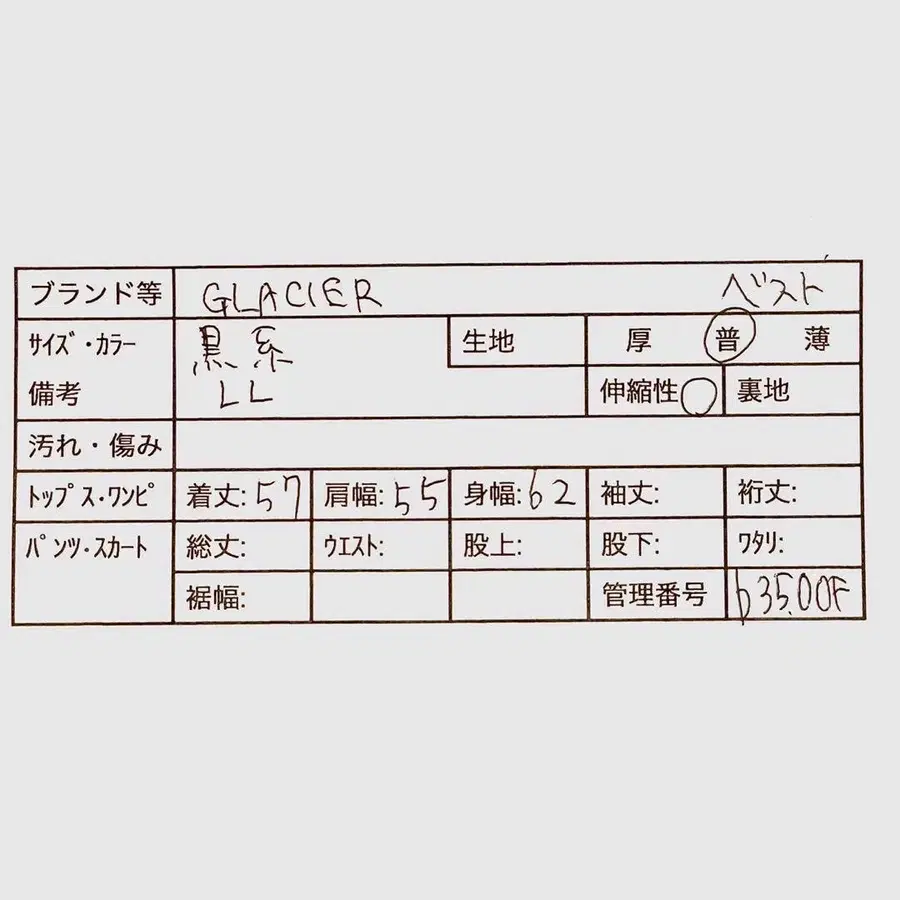 ブランド等 GLACIER ベスト
サイズ・カラー 黒系 生地 厚 普 薄
備考 LL 伸縮性○ 裏地
汚れ・傷み
トップス・ワンピ 着丈:57 肩幅:55 身幅:62 袖丈: 裄丈:
パンツ・スカート 総丈: ウエスト: 股上: 股下: ワタリ:
裾幅: 管理番号